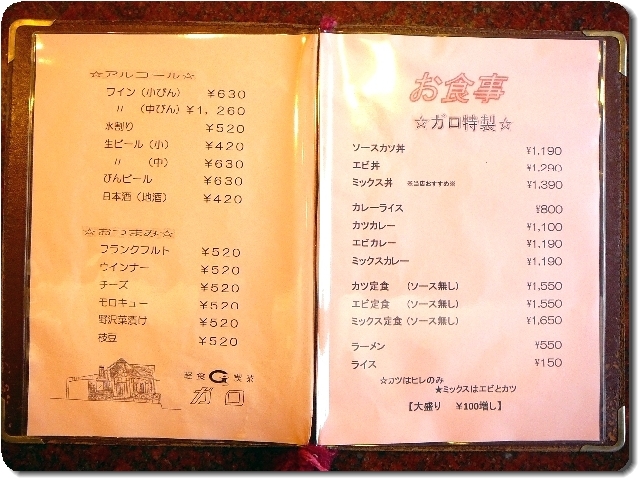 ☆アルコール☆
ワイン（小びん） ￥630
〃 （中びん）￥1，260
水割り ￥520
生ビール（小） ￥420
〃 （中） ￥630
びんビール ￥630
日本酒（地酒） ￥420
☆おつまみ☆
フランクフルト ￥520
ウインナー ￥520
チーズ ￥520
モロキュー ￥520
野沢菜漬け ￥520
枝豆 ￥520
軽食 G 喫茶
ガロ
お食事
☆ガロ特製☆
ソースカツ丼 ¥1,190
エビ丼 ¥1,290
ミックス丼 ※当店おすすめ※ ¥1,390
カレーライス ¥800
カツカレー ¥1,100
エビカレー ¥1,190
ミックスカレー ¥1,190
カツ定食 （ソース無し） ¥1,550
エビ定食 （ソース無し） ¥1,550
ミックス定食（ソース無し） ¥1,650
ラーメン ¥550
ライス ¥150
☆カツはヒレのみ
★ミックスはエビとカツ
【大盛り ￥100増し】